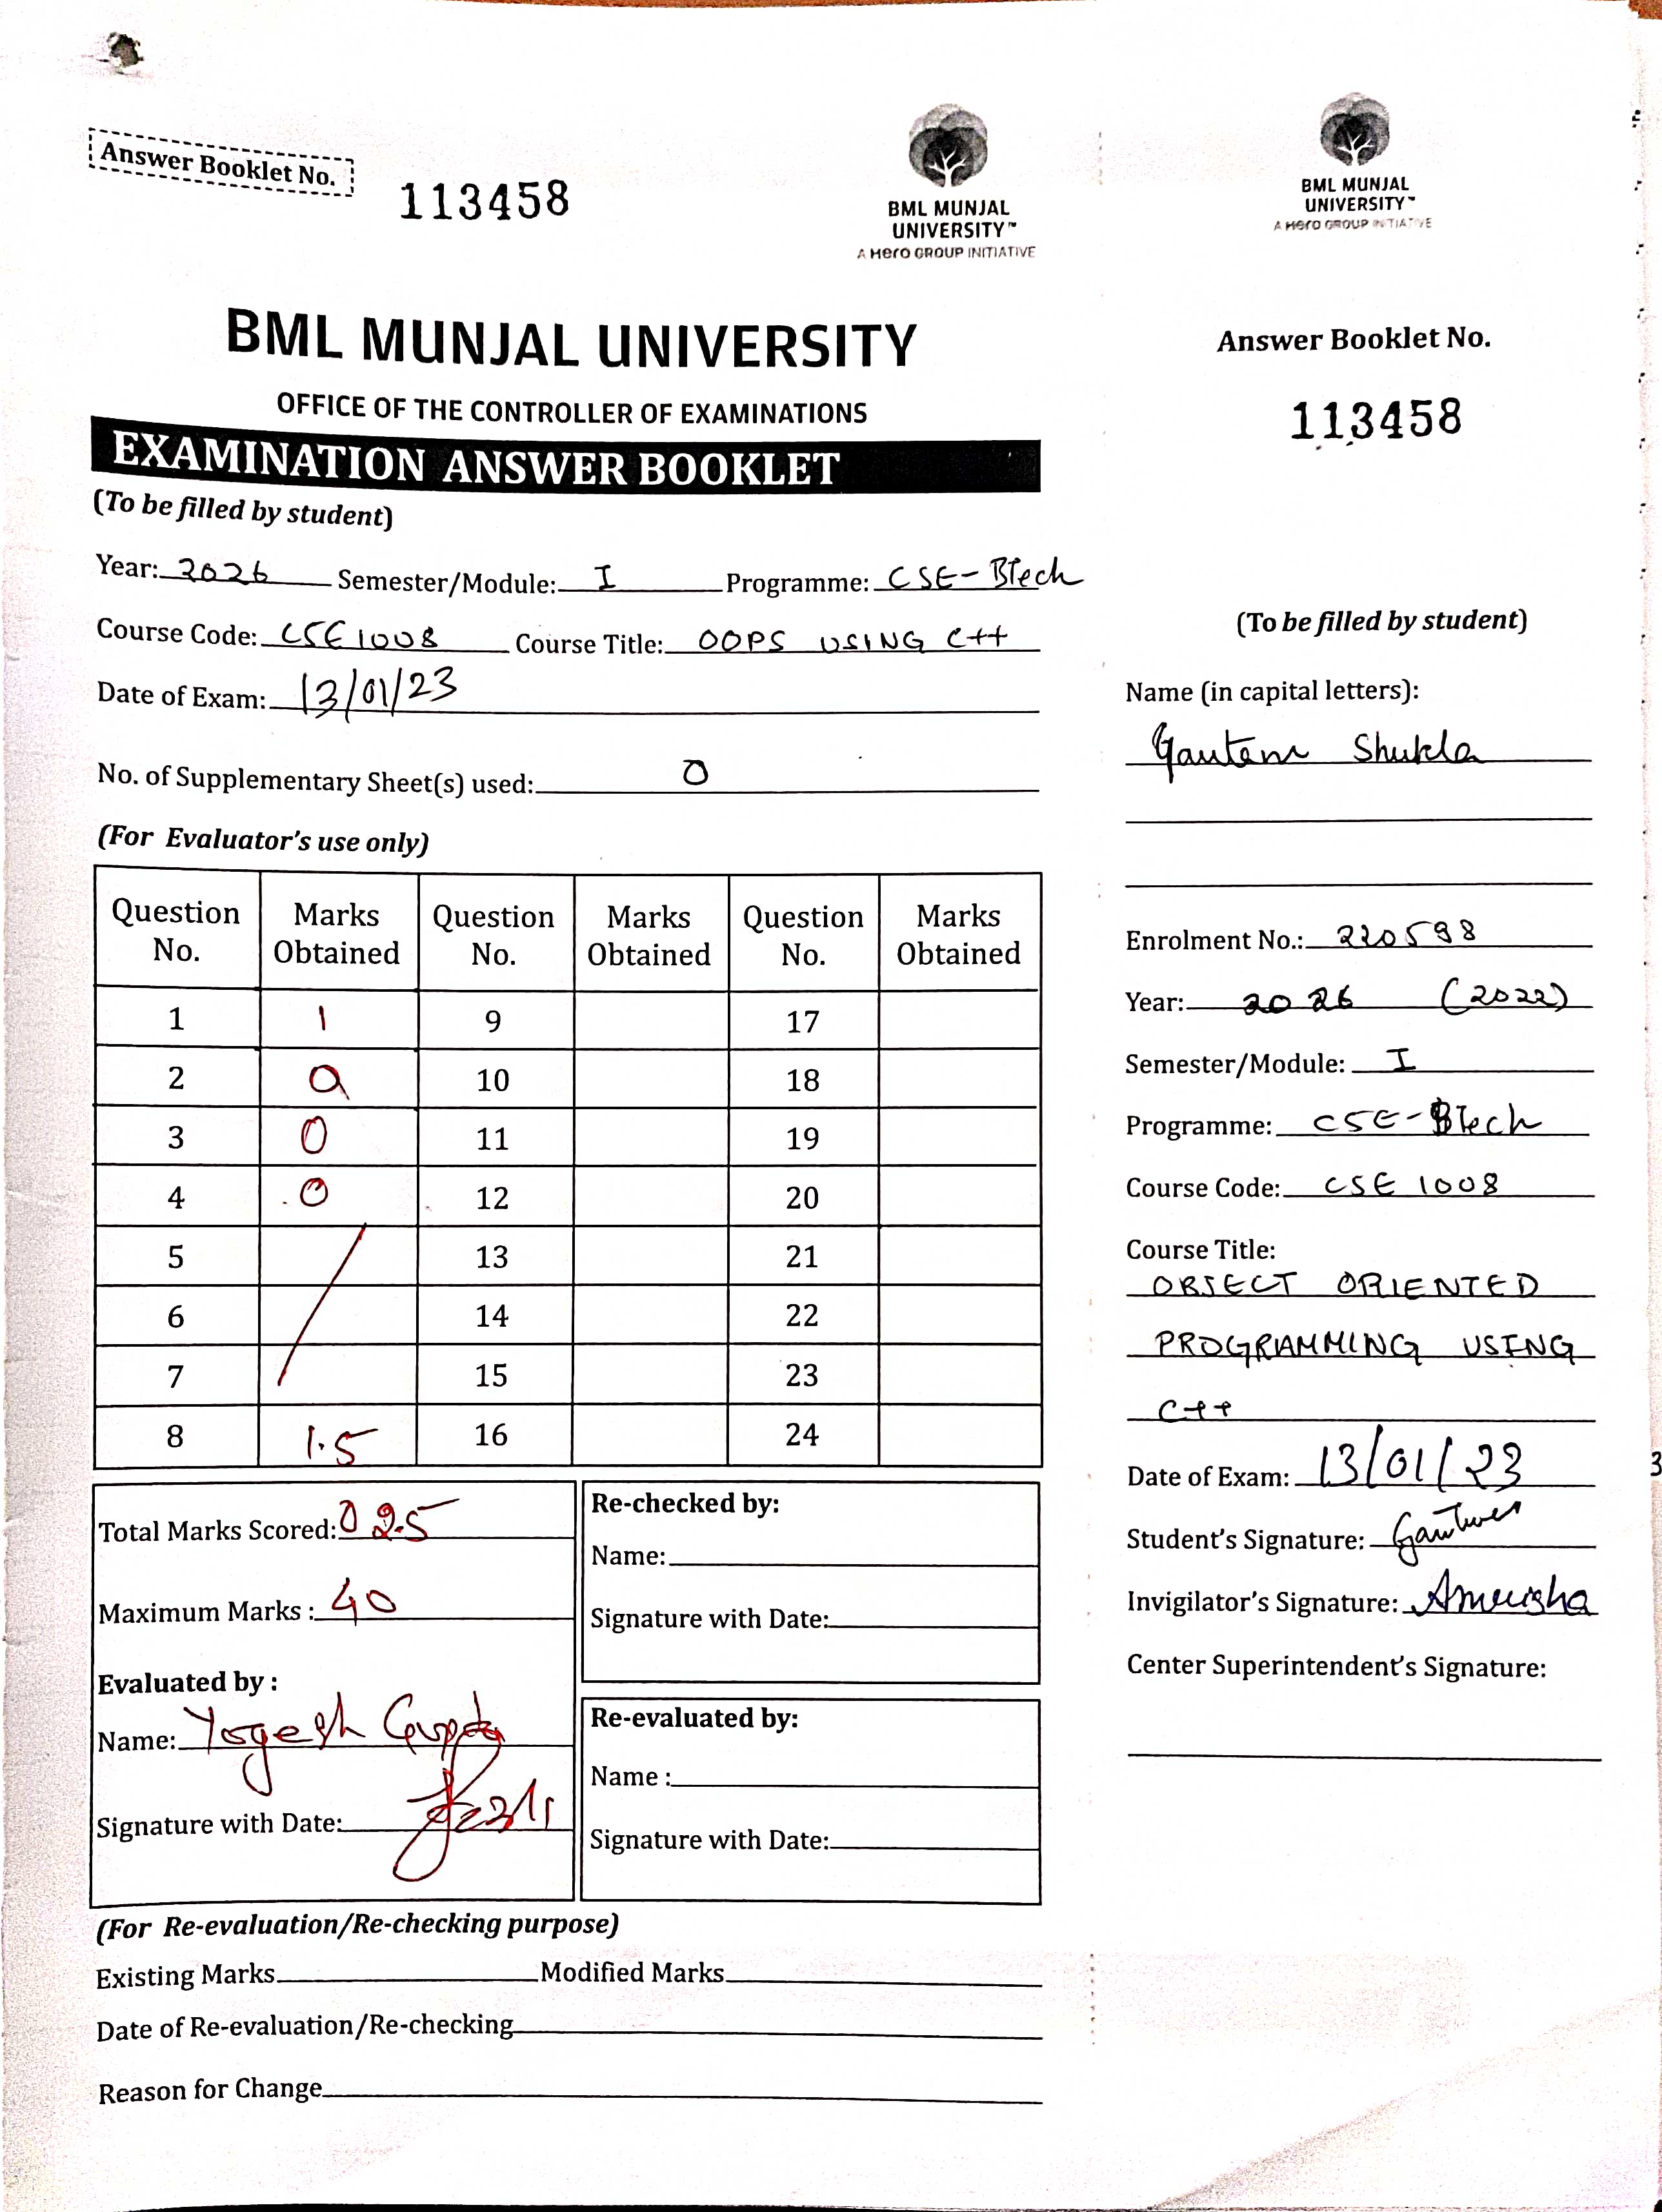 Answer Booklet No.
113458
BML MUNJAL
UNIVERSITY™
A Hero GROUP INITIATIVE
BML MUNJAL UNIVERSITY
OFFICE OF THE CONTROLLER OF EXAMINATIONS
EXAMINATION ANSWER BOOKLET
(To be filled by student)
Year: 2026 Semester/Module: I Programme: CSE-BTech
Course Code: CSE1008 Course Title: OOPS USING C++
Date of Exam: 13/01/23
No. of Supplementary Sheet(s) used: 0
(For Evaluator's use only)
Question No. Marks Obtained Question No. Marks Obtained Question No. Marks Obtained
1 1 9 17
2 0 10 18
3 0 11 19
4 0 12 20
5 13 21
6 14 22
7 15 23
8 1.5 16 24
Total Marks Scored: 02.5
Maximum Marks : 40
Evaluated by :
Name: Yogesh Gupta
Signature with Date:
Re-checked by:
Name:
Signature with Date:
Re-evaluated by:
Name :
Signature with Date:
(For Re-evaluation/Re-checking purpose)
Existing Marks Modified Marks
Date of Re-evaluation/Re-checking
Reason for Change
BML MUNJAL
UNIVERSITY™
A Hero GROUP INITIATIVE
Answer Booklet No.
113458
(To be filled by student)
Name (in capital letters):
Gautam Shukla
Enrolment No.: 220598
Year: 2026 (2022)
Semester/Module: I
Programme: CSE-BTech
Course Code: CSE 1008
Course Title:
OBJECT ORIENTED
PROGRAMMING USING
C++
Date of Exam: 13/01/23
Student's Signature: Gautam
Invigilator's Signature: Anuisha
Center Superintendent's Signature:
3